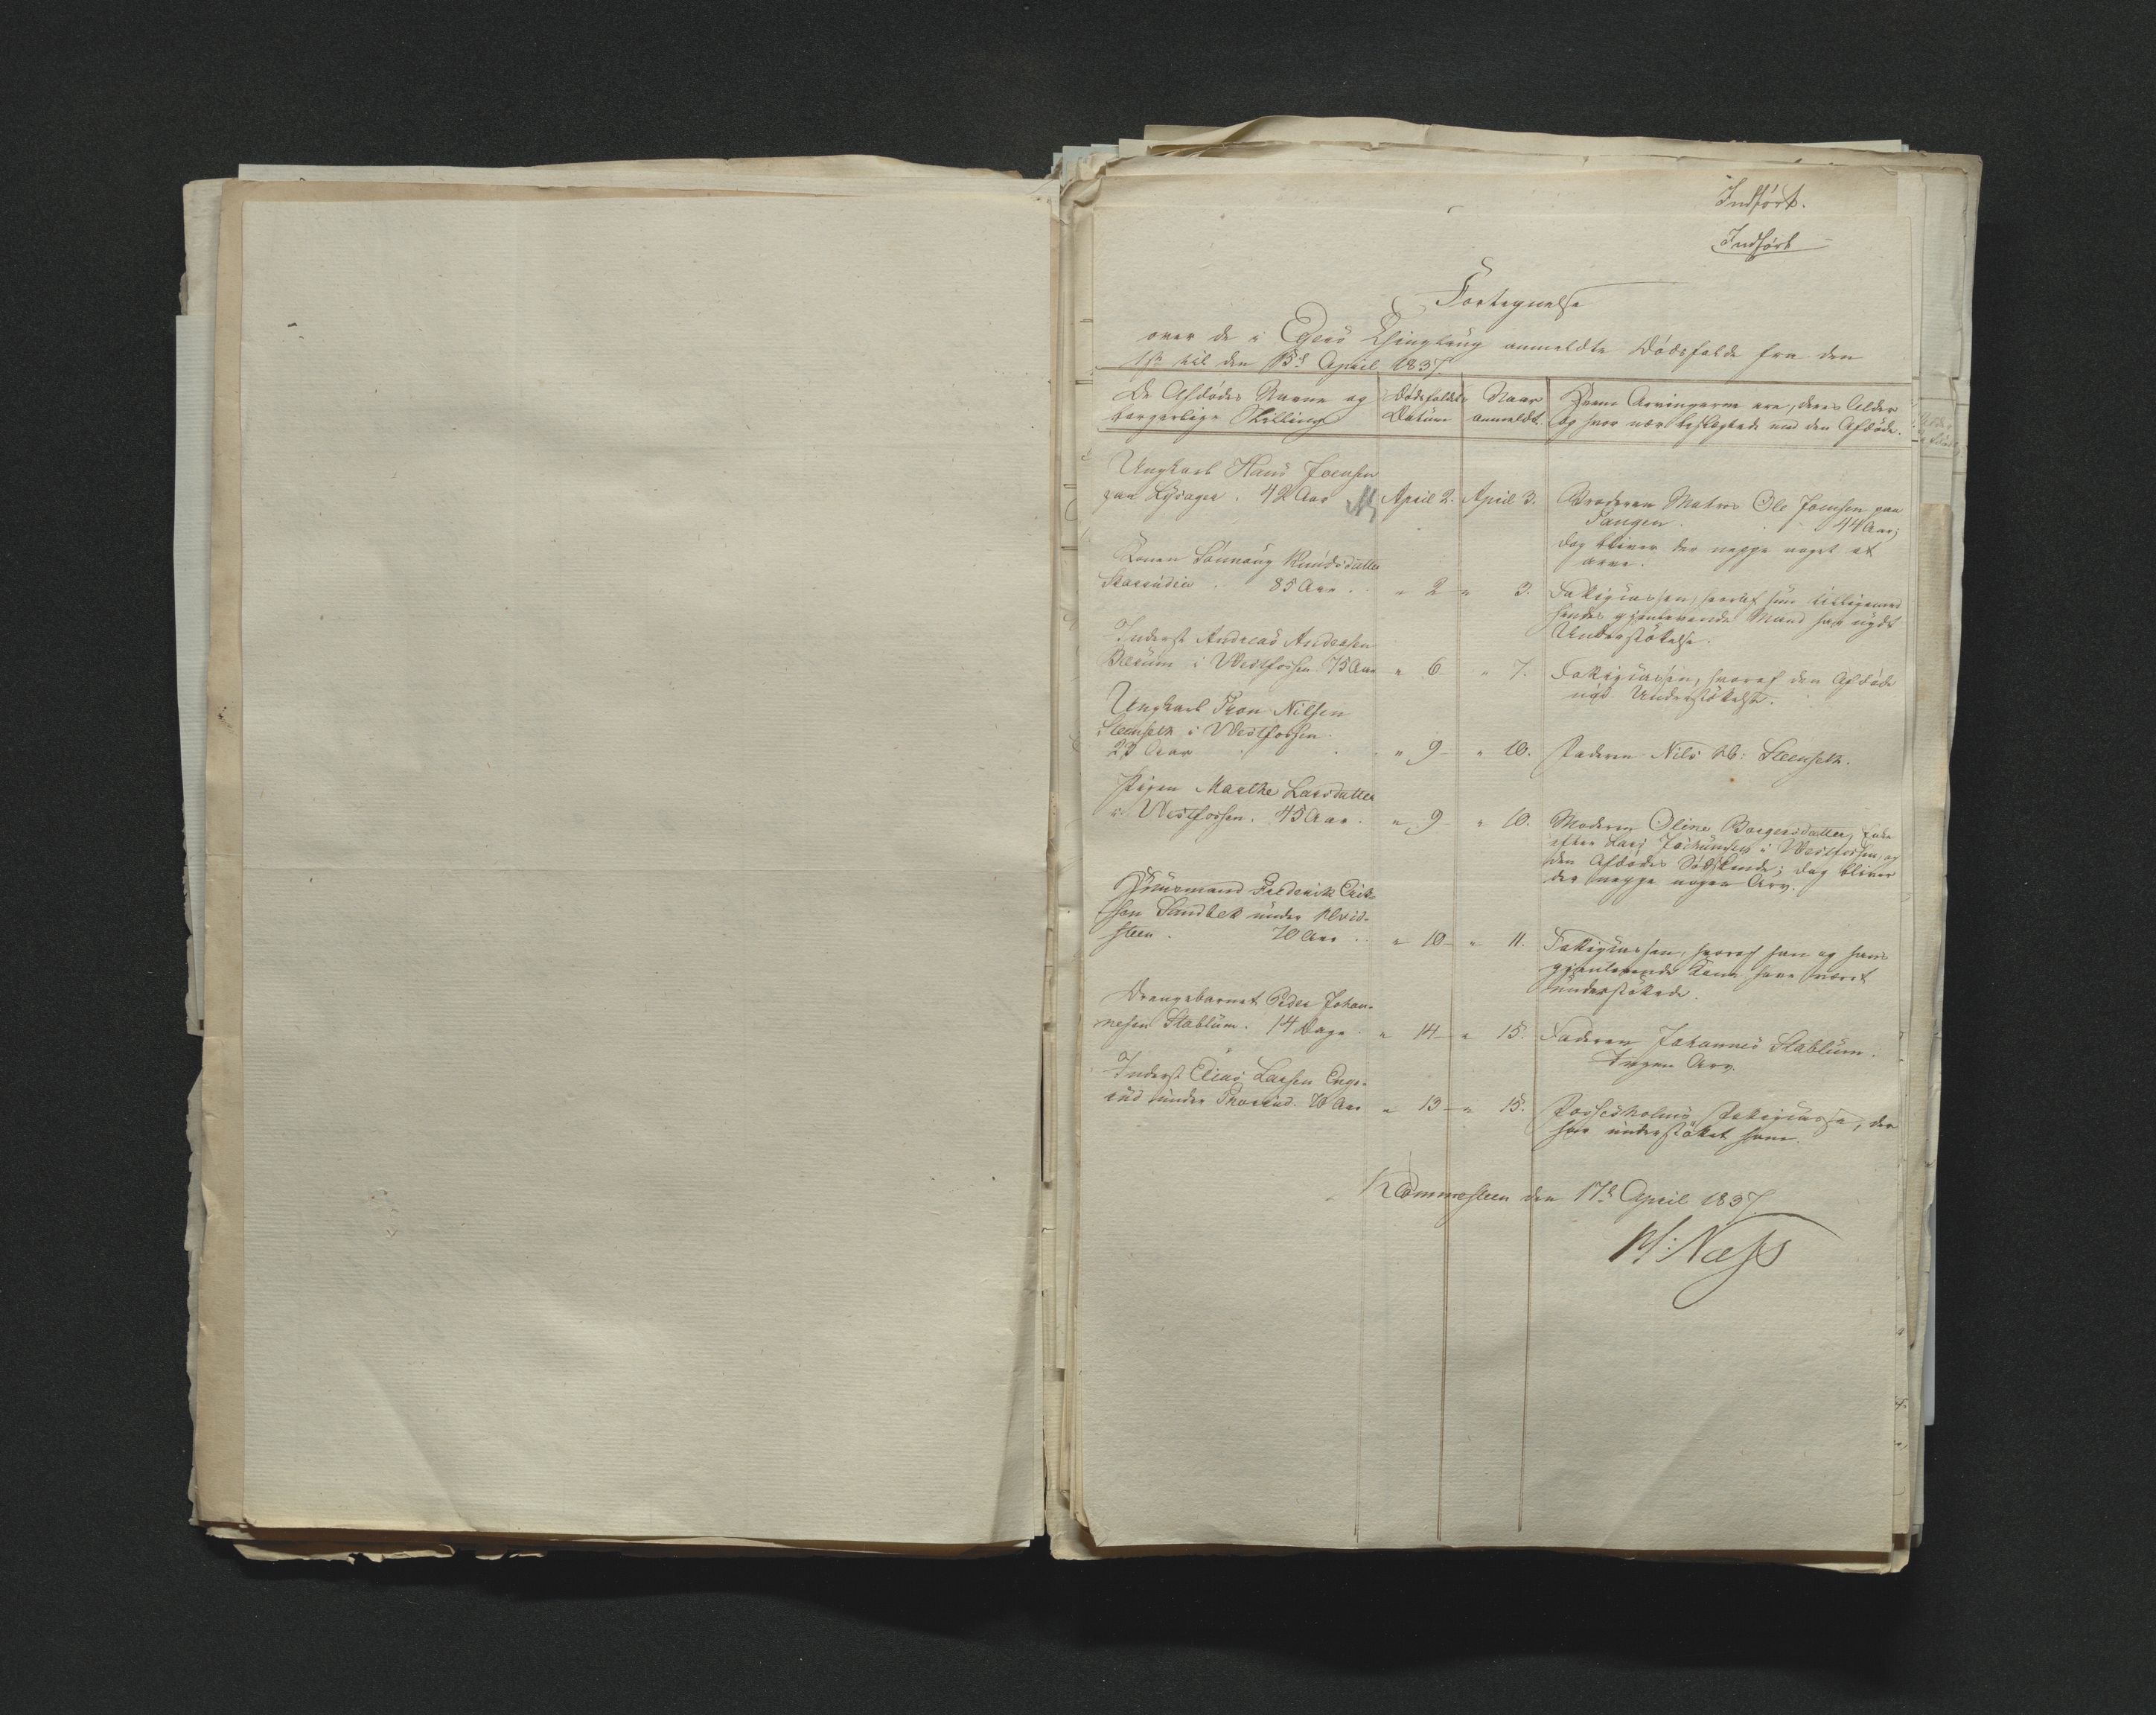 Indført.
Indført
Fortegnelse
over de i Egers Thinglaug anmeldte Dødsfalde fra den
1ste til den 15de April 1837.
De Afdødes Navne og borgerlige Stilling
Dødsfaldets Datum
Naar anmeldt.
Hvem Arvingerne ere, deres Alder
og hvor nær beslægtede med den Afdøde.
Ungkarl Hans Joensen
paa Lysager. 42 Aar April 2. April 3. Broderen Matros Ole Joensen paa
Tangen. 44 Aar;
dog bliver der neppe noget at
arve.
Konen Sønnaug Knudsdatter
Skarrudie. 85 Aar. " 2 " 3. Fattigcassen, hvoraf hun tilligemed
hendes gjenlevende Mand har nydt
Understøttelse.
Inderst Andreas Andersen
Bærum i Westfossen 75 Aar " 6 " 7. Fattigcassen, hvoraf den Afdøde
nød Understøttelse.
Ungkarl Iver Nilsen
Steenseth i Westfossen.
23 Aar " 9 " 10. Faderen Nils Steenseth.
Pigen Marthe Larsdatter
i Westfossen. 45 Aar. " 9 " 10. Moderen Oline Borgersdatter, Enke
efter Lars Jochumsen i Westfossen, og
den Afdødes Sødskende; dog bliver
der neppe nogen Arv.
Huusmand Frederik Erik-
sen Sandbek under
steen. 70 Aar. " 10 " 11. Fattigcassen, hvoraf han og hans
gjenlevende Kone have været
understøttede.
Drengebarnet Peder Johan-
nesen Stablum. 14 Dage. " 14 " 15. Faderen Johannes Stablum.
Ingen Arv.
Inderst Elias Larsen Enge-
rud under Thorrud. 70 Aar " 13 " 15. Fossesholms Fattigcasse, der
har understøttet ham.
den 17de April 1837.
Næss